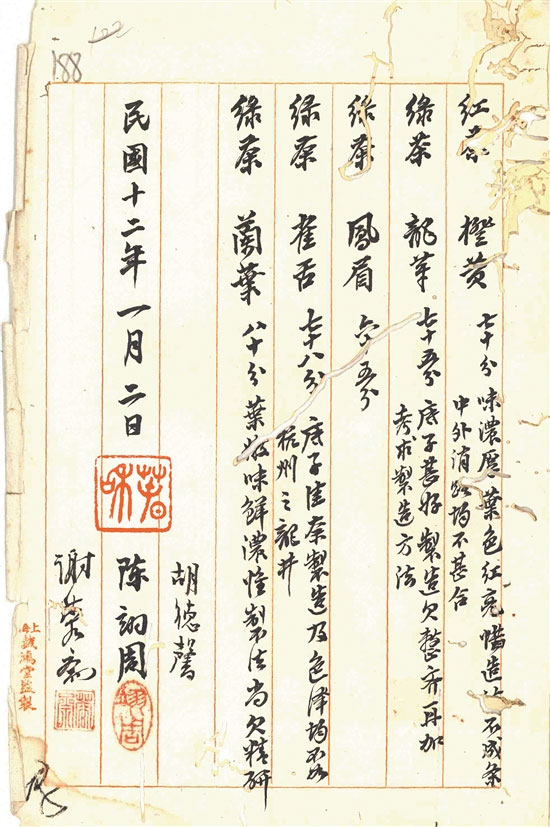 188
红茶 橙黄 七十分 味濃厚葉色红亮惜造法不成条
中外消路均不甚合
綠茶 龍芽 七十五分 底子甚好製造欠整齐再加
考求製造方法
綠茶 鳳眉 六十五分
綠茶 雀舌 七十八分 底子佳奈製造及色泽均不如
杭州之龍井
綠茶 蘭葉 八十分 葉嫩味鮮濃惟制法尚欠精研
民國十二年一月二日
胡德馨
陈翊周
謝
鴻堂监製